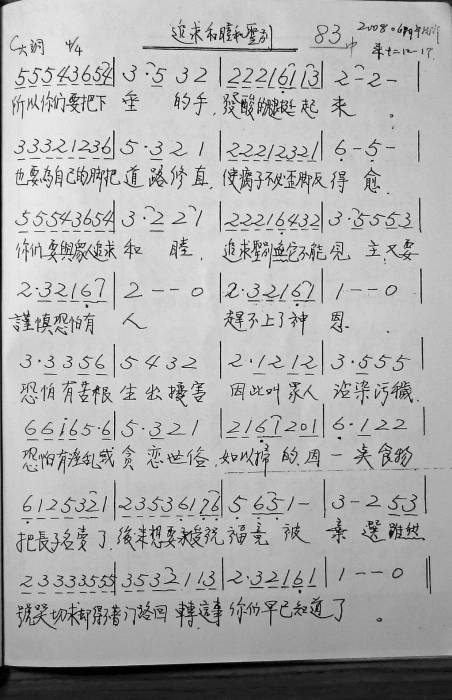 追求和睦和聖別 83
C大調 4/4
5 5 5 4 3 6 5 4 | 3 · 5 3 2 | 2 2 2 1 6 1 1 3 | 2 - 2 - |
所以你們要把下垂的手,發酸的腿挺起來。
3 3 3 2 1 2 3 6 | 5 · 3 2 1 | 2 2 2 1 2 3 2 1 | 6 - 5 - |
也要為自己的腳把道路修直,使瘸子不必歪腳反得愈
5 5 5 4 3 6 5 4 | 3 · 2 2 1 | 2 2 2 1 6 4 3 2 | 3 · 5 5 5 3 |
你們要與眾人追求和睦,追求聖別無它不能見主又要
2 · 3 2 1 6 7 | 2 - - 0 | 2 · 3 2 1 6 7 | 1 - - 0 |
謹慎恐怕有人趕不上了神恩.
3 · 3 3 5 6 | 5 4 3 2 | 2 · 1 2 1 2 | 3 · 5 5 5 |
恐怕有苦根生出擾害因此叫眾人沾染污穢.
6 6 i 6 5 · 6 | 5 · 3 2 1 | 2 1 6 7 2 0 1 | 6 · 1 2 2 |
恐怕有淫亂或貪戀世俗,如以掃的,因一点食物
6 1 2 5 3 2 1 | 2 3 5 3 6 1 7 6 | 5 6 5 1 - | 3 - 2 5 3 |
把長子名賣了,後來想要承受祝福竟被棄選雖然
2 3 3 3 3 5 5 5 | 3 5 3 2 1 1 3 | 2 · 3 2 1 6 1 | 1 - - 0 ‖
號哭切求卻得着門路回轉這事你們早已知道了。